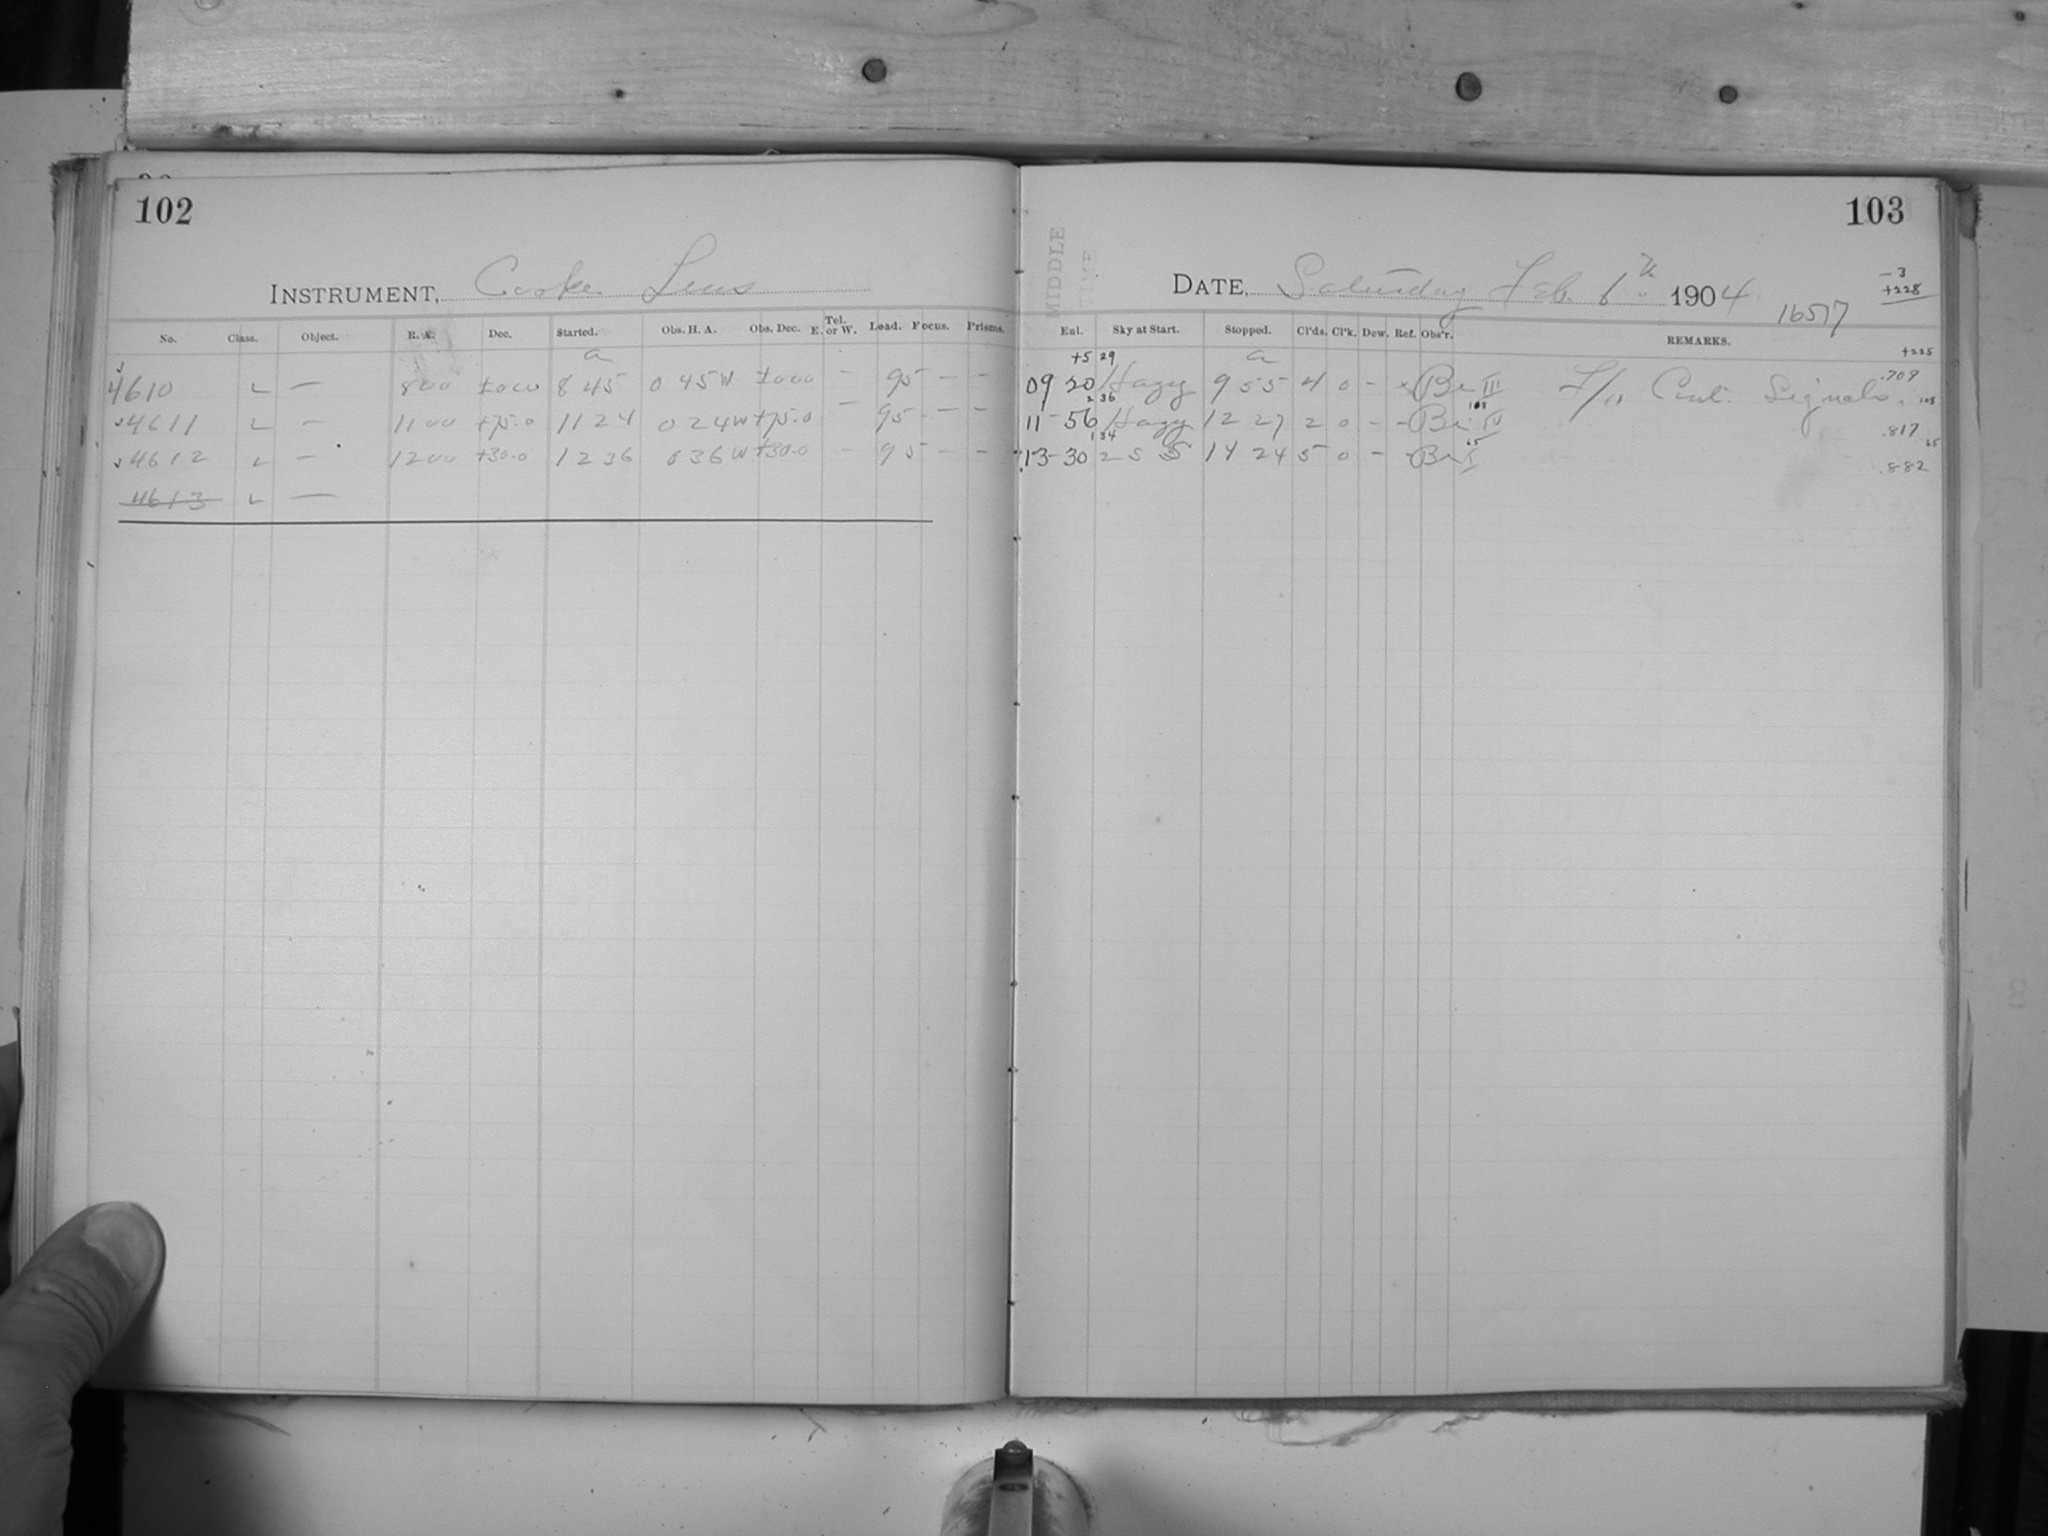 102
INSTRUMENT, Cooke Lens
No. Class. Object. R. A. Dec. Started. Obs. H. A. Obs. Dec. Tel. E. or W. Load. Focus. Prisms.
a
4610 L — 8 00 +000 8 45 0 45 W +000 — 95 — —
4611 L — 11 00 +75.0 11 24 0 24 W +75.0 — 95 — —
4612 L — 12 00 +30.0 12 36 0 36 W +30.0 — 95 — —
4613 L —
103
MIDDLE
TIME
DATE, Saturday Feb. 6th 1904
16517
-3
+228
Eul. Sky at Start. Stopped. Cl'ds. Cl'k. Dew. Ref. Obs'r. REMARKS.
+5 29 a +225
09 20 Hazy 9 55 4 0 - - Be III F/11 Cent. Signals. .709
2 36 108 108
11 56 Hazy 12 27 2 0 - - Be IV .817
1 34 65 65
13 30 2 S S 14 24 5 0 - - Be .882